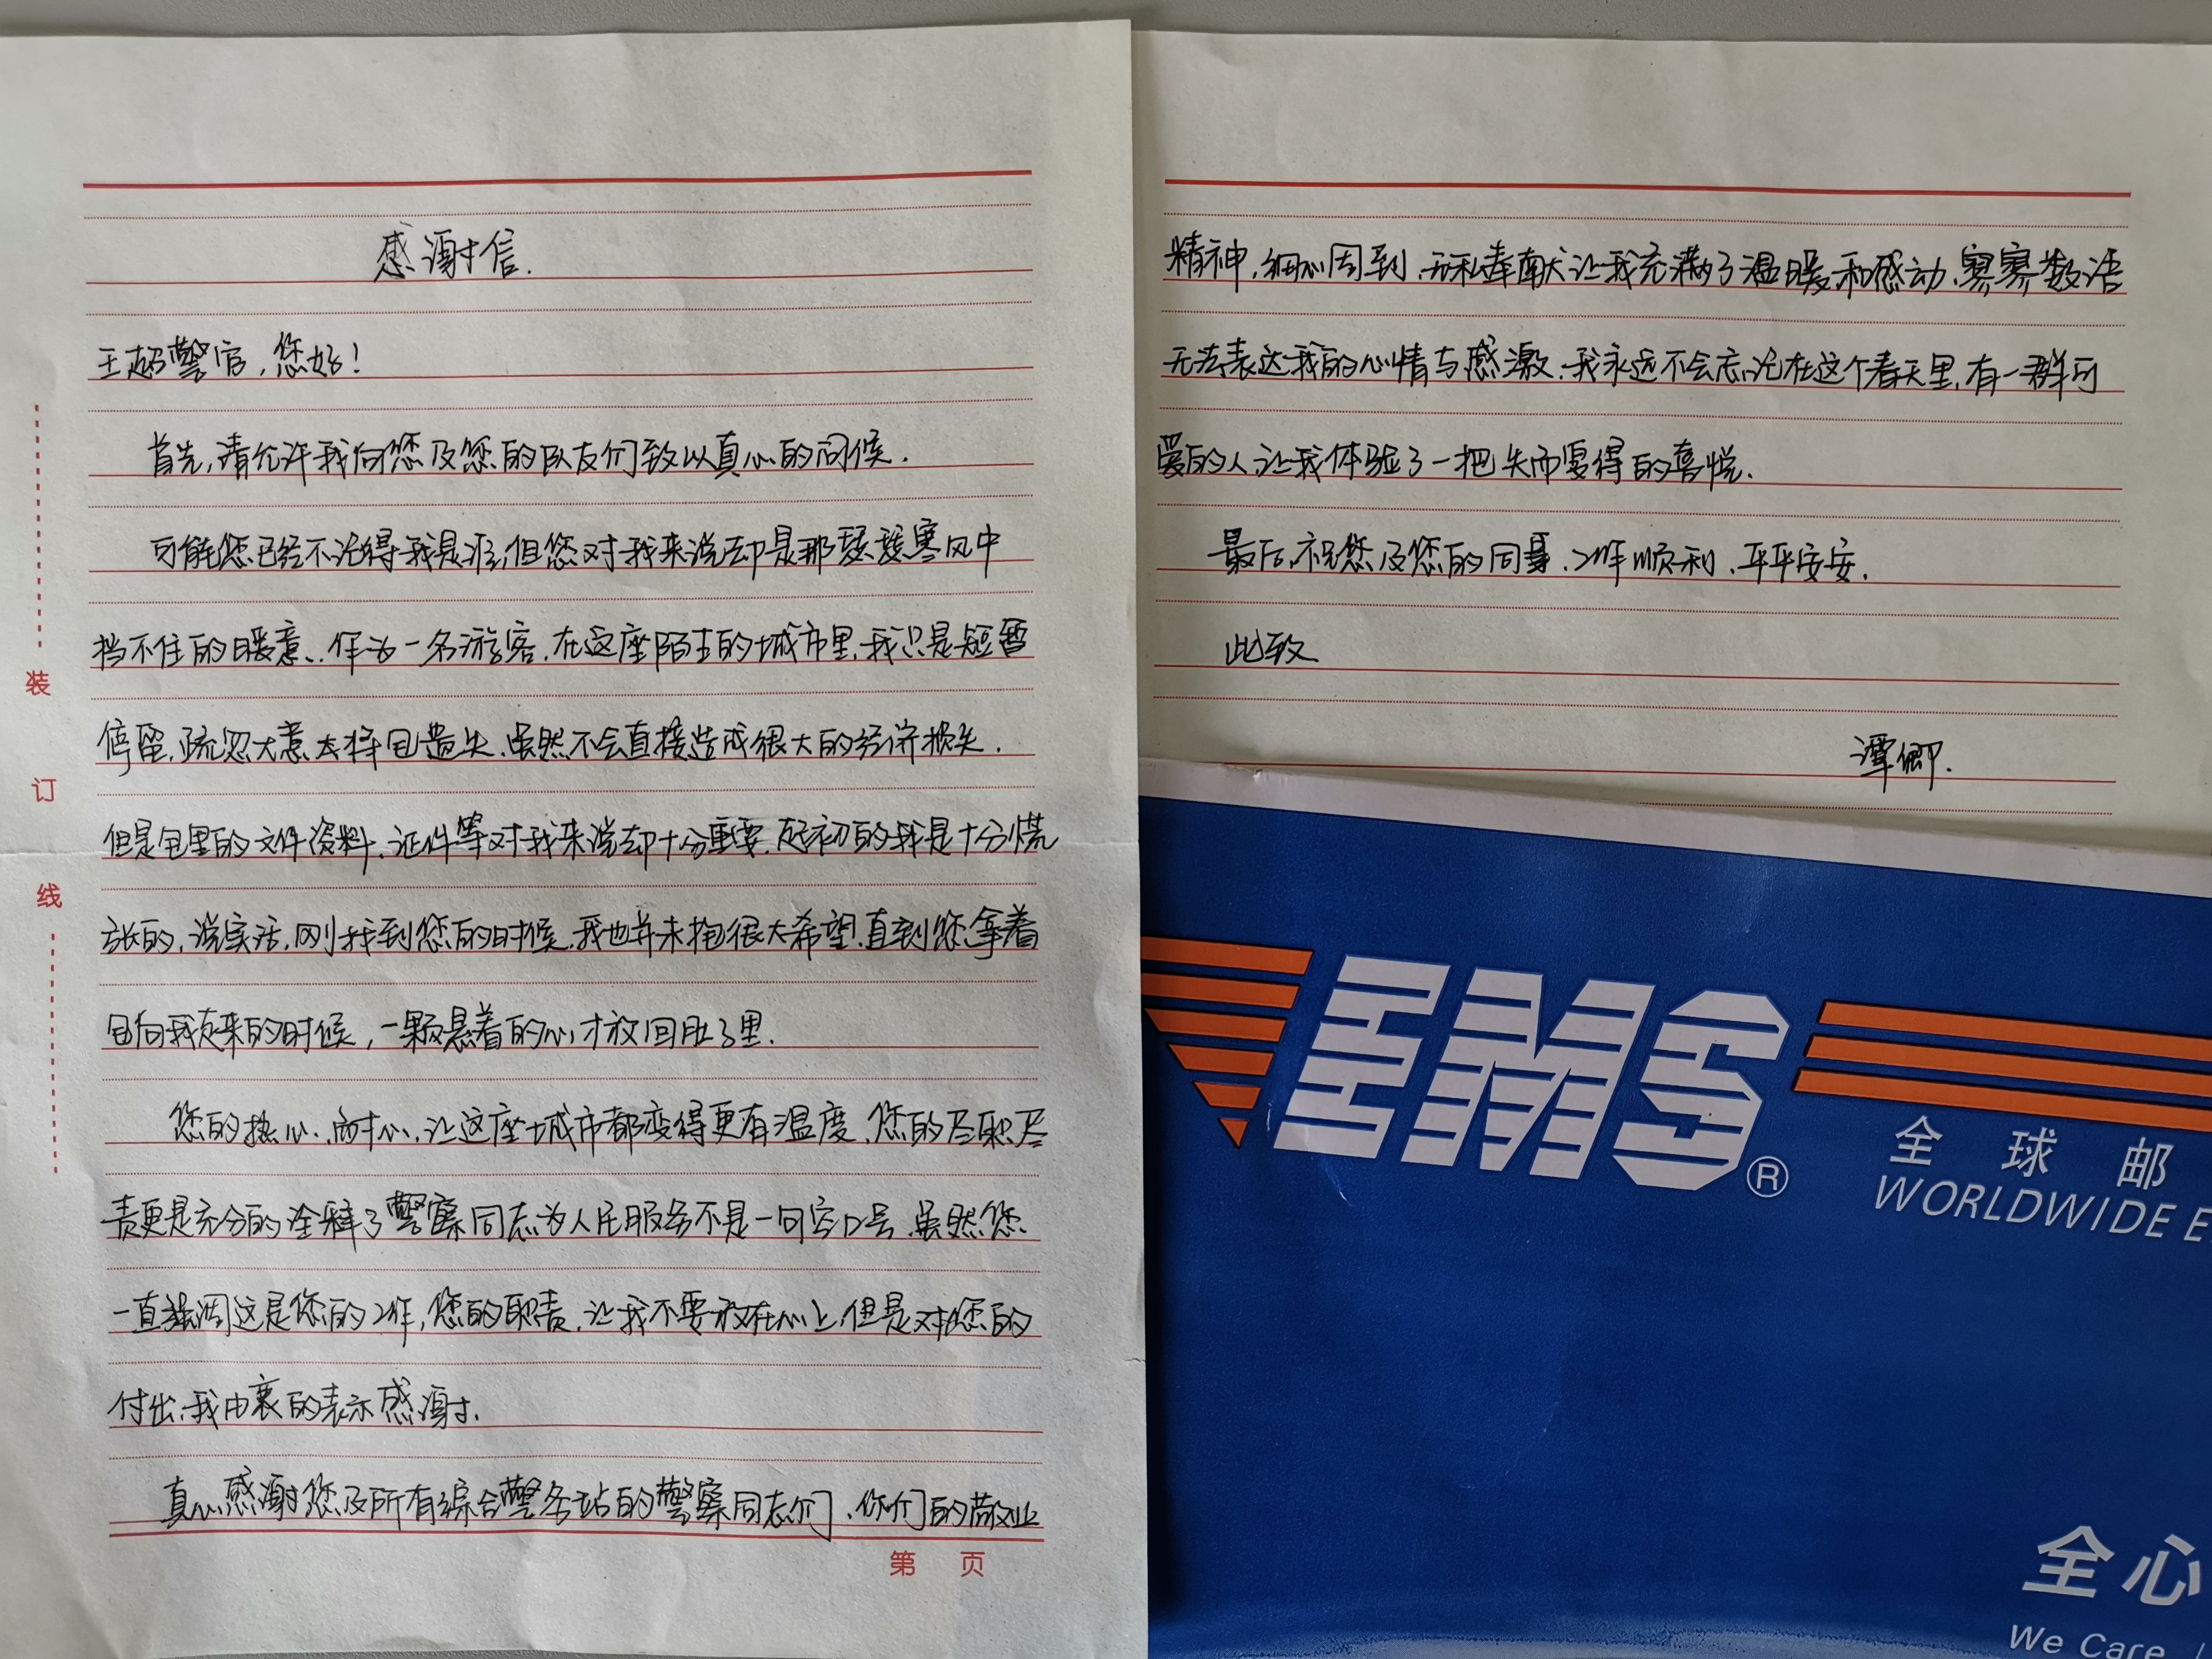 感谢信.
王超警官,您好!
首先,请允许我向您及您的队友们致以真心的问候.
可能您已经不记得我是谁,但您对我来说却是那瑟瑟寒风中
挡不住的暖意.作为一名游客.在这座陌生的城市里.我只是短暂
停留.疏忽大意太将包遗失.虽然不会直接造成很大的经济损失.
但是包里的文件资料.证件等对我来说却十分重要.起初的我是十分慌
张的,说实话,刚找到您的时候.我也并未抱很大希望.直到您拿着
包向我走来的时候,一颗悬着的心才放回肚子里.
您的热心.耐心.让这座城市都变得更有温度.您的尽职尽
责更是充分的诠释了警察同志为人民服务不是一句空口号.虽然您
一直强调这是您的工作,您的职责.让我不要放在心上.但是对您的
付出.我由衷的表示感谢.
真心感谢您及所有综合警务站的警察同志们.你们的敬业
第 页
装
订
线
精神,细心周到.无私奉献太让我充满了温暖和感动.寥寥数语
无法表达我的心情与感激.我永远不会忘记在这个春天里,有一群可
爱的人让我体验了一把失而复得的喜悦.
最后,祝您及您的同事.工作顺利.平平安安.
此致
谭卿.
EMS®
全球邮
WORLDWIDE E
全心
We Care